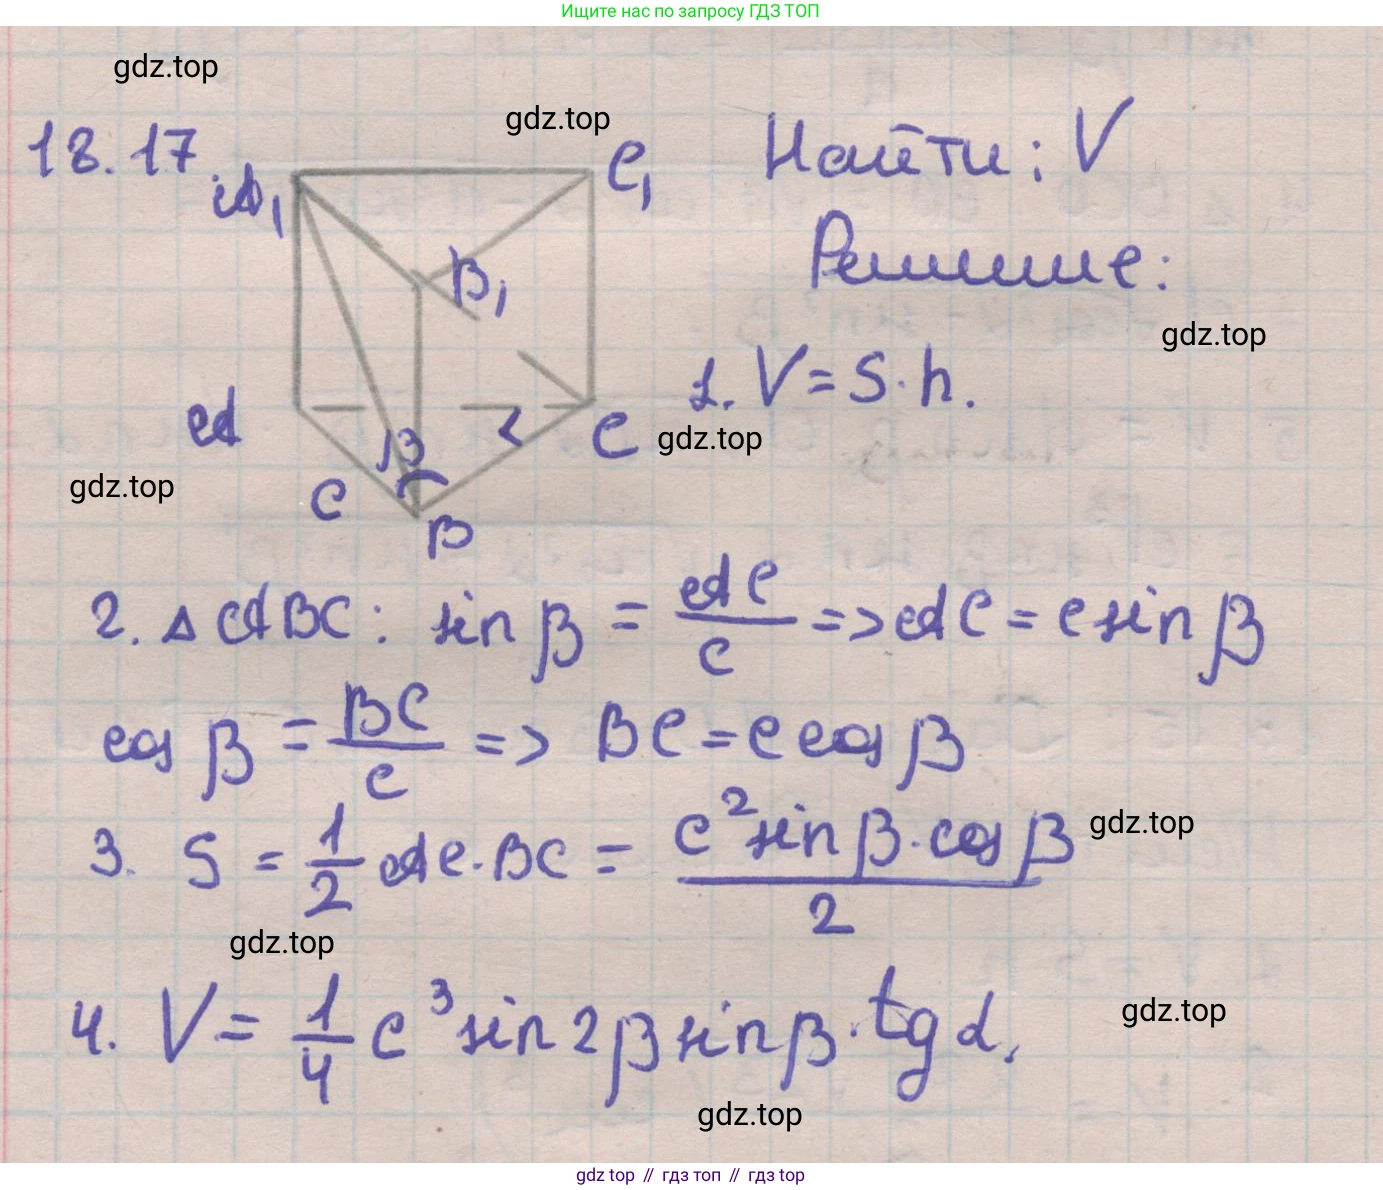 Ищите нас по запросу ГДЗ ТОП
gdz.top
gdz.top
18.17.
A₁
C₁
Найти: V
B₁
Решение:
gdz.top
1. V = S · h.
A
β
C
gdz.top
gdz.top
c
B
2. △ABC: sin β = AC/c => AC = c sin β
cos β = BC/c => BC = c cos β
gdz.top
3. S = 1/2 AC · BC = c² sin β · cos β / 2
gdz.top
4. V = 1/4 c³ sin 2β sin β · tg α.
gdz.top
gdz.top
gdz top // гдз топ // гдз top